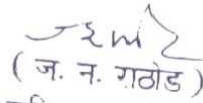 ( ज. न. राठोड )